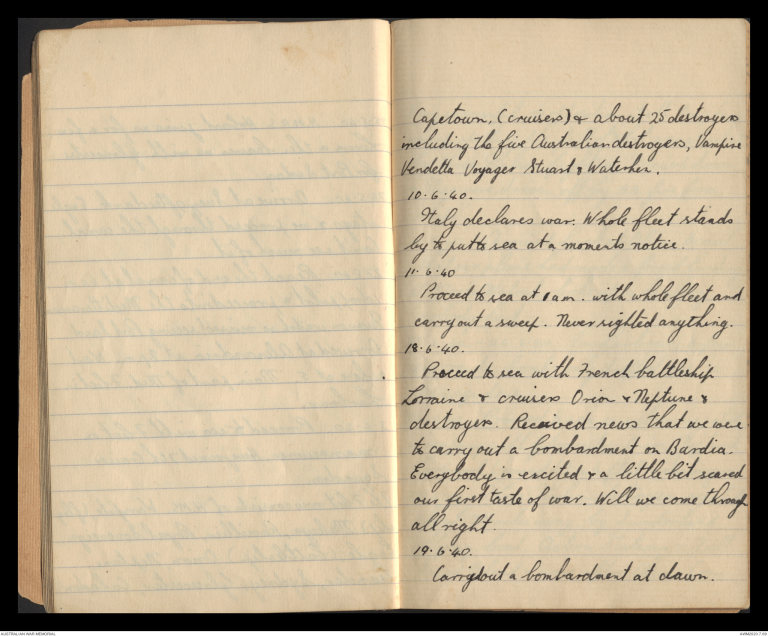 Capetown, (cruisers) & about 25 destroyers
including the five Australian destroyers, Vampire
Vendetta Voyager Stuart & Waterhen.
10.6.40.
Italy declares war. Whole fleet stands
by to put to sea at a moments notice.
11.6.40
Proceed to sea at 1 am. with whole fleet and
carry out a sweep. Never sighted anything.
18.6.40.
Proceed to sea with French battleship
Lorraine & cruisers Orion & Neptune &
destroyers. Received news that we were
to carry out a bombardment on Bardia.
Everybody is excited & a little bit scared
our first taste of war. Will we come through
all right.
19.6.40.
Carried out a bombardment at dawn.
AUSTRALIAN WAR MEMORIAL